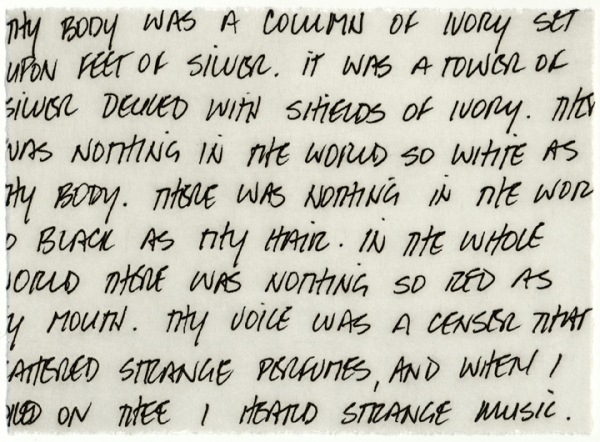 THY BODY WAS A COLUMN OF IVORY SET
UPON FEET OF SILVER. IT WAS A TOWER OF
SILVER DECKED WITH SHIELDS OF IVORY. THER
WAS NOTHING IN THE WORLD SO WHITE AS
THY BODY. THERE WAS NOTHING IN THE WOR
O BLACK AS THY HAIR. IN THE WHOLE
WORLD THERE WAS NOTHING SO RED AS
Y MOUTH. THY VOICE WAS A CENSER THAT
CATTERED STRANGE PERFUMES, AND WHEN I
ON THEE I HEARD STRANGE MUSIC.